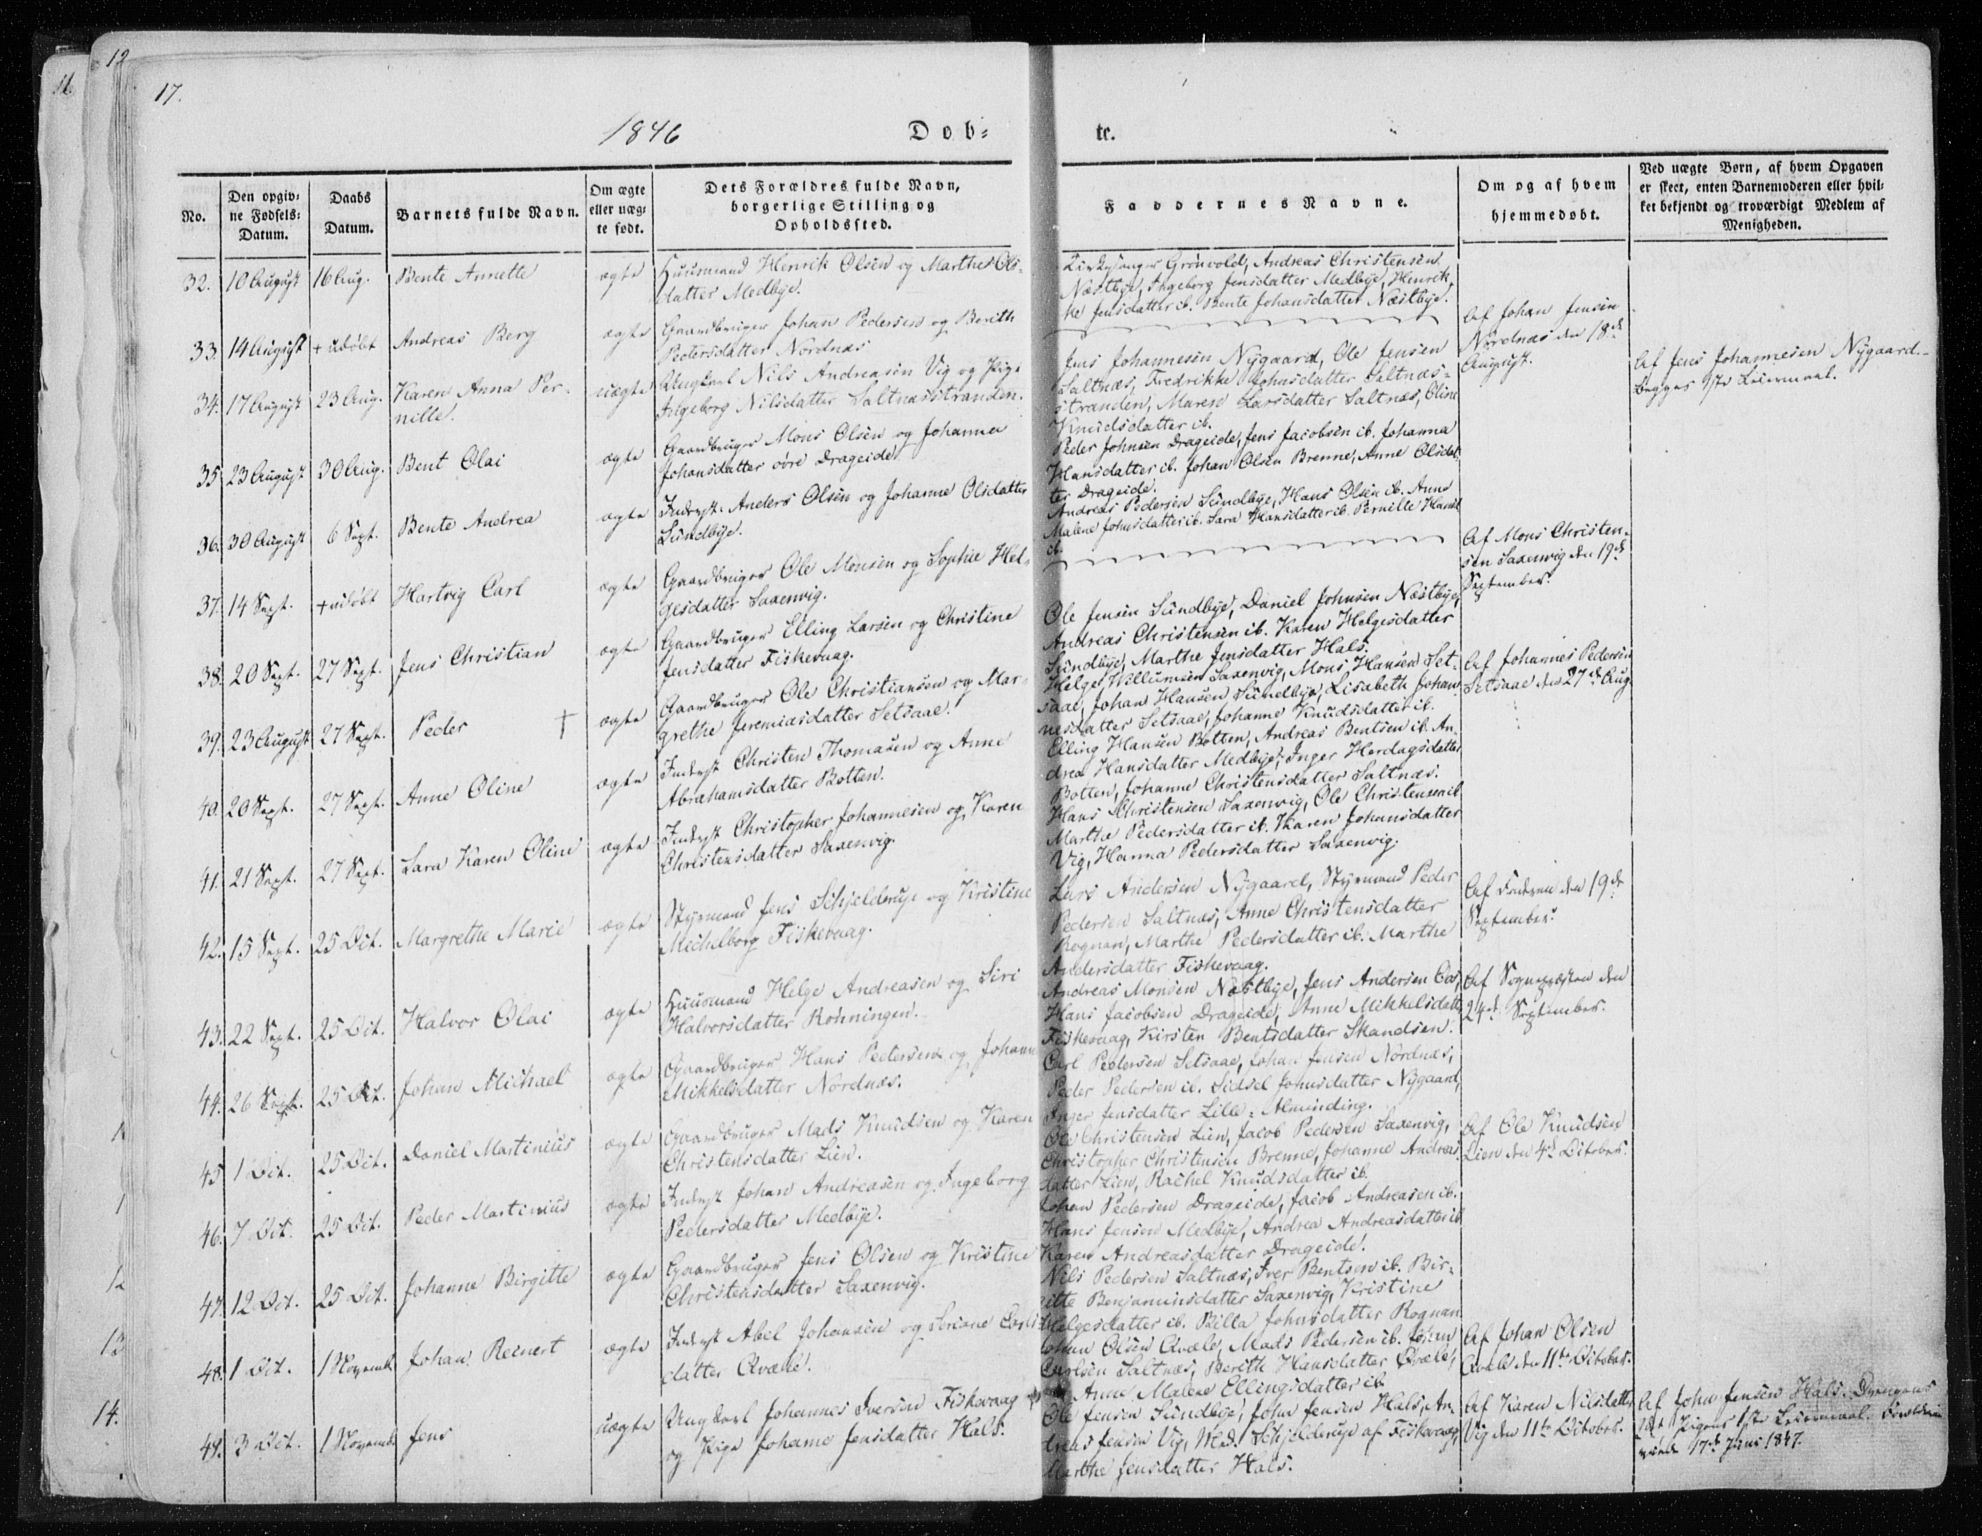 12
11.
17.
1846
Dob=
te.
No.
Den opgiv=
ne Fødsels=
Datum.
Daabs
Datum.
Barnets fulde Navn.
Om ægte
eller uæg=
te født.
Dets Forældres fulde Navn,
borgerlige Stilling og
Opholdssted.
Faddernes Navne.
Om og af hvem
hjemmedøbt.
Ved uægte Børn, af hvem Opgaven
er skeet, enten Barnemoderen eller hvil=
ket bekjendt og troværdigt Medlem af
Menigheden.
32. 10 August 16 Aug. Bente Annette ægte Huusmand Henrik Olsen og Marthe Ols-
datter Medbye.
Grønvold, Andreas Christensen
Næstbye, Ingeborg Jensdatter Medbye, Henrik-
ke Jensdatter ib. Bente Johansdatter Næstbye.
33. 14 August + udøbt Andreas Berg ægte Gaardbruger Johan Pedersen og Berith
Pedersdatter Nordnæs
Af Johan Jensen
Nordnæs den 18de
August.
34. 17 August 23 Aug. Karen Anna Per-
nille. uægte Ungkarl Nils Andreasen Vig og Pige
Ingeborg Nilsdatter Saltnæsstranden.
Jens Johannesen Nygaard, Ole Jensen
Saltnæs, Fredrikke Johnsdatter Saltnæs-
stranden, Maren Larsdatter Saltnæs, Oline
Knudsdatter ib.
Af Jens Johannesen Nygaard.-
Begges 1ste Leiermaal.
35. 23 August 30 Aug. Bent Olai ægte Gaardbruger Mons Olsen og Johanna
Johansdatter øvre Drageide
Peder Johnsen Drageide, Jens Jacobsen ib. Johanna
Hansdatter ib. Johan Olsen Brenne, Anne Olsdat-
ter Drageide.
36. 30 August 6 Sept. Bente Andrea ægte Inderst. Anders Olsen og Johanne Olsdatter
Sundbye.
Andreas Pedersen Sundbye, Hans Olsen ib. Anne
Malene Johnsdatter ib. Sara Hansdatter ib. Pernille Hansd
ib.
37. 14 Sept. + udøbt Hartvig Carl ægte Gaardbruger Ole Monsen og Sophie Hel-
gesdatter Saxenvig.
Af Mons Christen-
sen Saxenvig den 19de
September.
38. 20 Sept. 27 Sept. Jens Christian ægte Gaardbruger Elling Larsen og Christine
Jensdatter Fiskevaag.
Ole Jensen Sundbye, Daniel Johnsen Næstbye,
Andreas Christensen ib. Karen Helgesdatter
Sundbye, Marthe Jensdatter Hals.
39. 23 August 27 Sept. Peder † ægte Gaardbruger Ole Christiansen og Mar-
grethe Jeremiasdatter Setsaae.
Helge Willumsen Saxenvig, Mons Hansen Set-
saae, Johan Hansen Sundbye, Lisabeth Johan-
nesdatter Setsaae, Johanne Knudsdatter ib.
Af Johannes Pedersen
Setsaae den 27de Aug.
40. 20 Sept. 27 Sept. Anne Oline ægte Inderst Christen Thomasen og Anne
Abrahamsdatter Botten.
Elling Hansen Botten, Andreas Bentsen ib. An-
drea Hansdatter Medbye, Inger Herdagsdatter
Botten, Johanne Christensdatter Saltnæs.
41. 21 Sept. 27 Sept. Sara Karen Oline ægte Inderst Christopher Johannesen og Karen
Christensdatter Saxenvig.
Hans Christensen Saxenvig, Ole Christensen ib.
Marthe Pedersdatter ib. Karen Johansdatter
Vig, Hanna Pedersdatter Saxenvig.
42. 15 Sept. 25 Oct. Margrethe Marie ægte Styrmand Jens Schjelderup og Kristine
Michelborg Fiskevaag.
Lars Andersen Nygaard, Styrmand Peder
Pedersen Saltnæs, Anne Christensdatter
Rognan, Marthe Pedersdatter ib. Marthe
Andersdatter Fiskevaag.
Af Faderen den 19de
September.
43. 22 Sept. 25 Oct. Halvor Olai ægte Huusmand Helge Andreasen og Siri
Halvorsdatter Rønningen.
Andreas Monsen Næstbye, Jens Andersen
Hans Jacobsen Drageide, Anne Mikkelsdatt.
Fiskevaag, Kirsten Bentsdatter Skandsen.
Af Sognepræsten den
24de September.
44. 26 Sept. 25 Oct. Johan Michael ægte Gaardbruger Hans Pedersen og Johanne
Mikkelsdatter Nordnæs.
Carl Pedersen Setsaae, Johan Jensen Nordnæs,
Peder Pedersen ib. Sidsel Johnsdatter Nygaard,
Inger Jensdatter Lille=Alminding.
45 1 Oct. 25 Oct. Daniel Martinius ægte Gaardbruger Mads Knudsen og Karen
Christensdatter Lien.
Ole Christensen Lien, Jacob Pedersen Saxenvig,
Christopher Christensen Brenne, Johanne Andreas-
datter Lien, Rachel Knudsdatter ib.
Af Ole Knudsen
Lien den 4de Octobr.
46. 7 Oct. 25 Oct. Peder Martinius ægte Inderst Johan Andreasen og Ingeborg
Pedersdatter Medbye.
Johan Pedersen Drageide, Jacob Andreasen ib.
Hans Jensen Medbye, Andrea Andreasdatter ib.
Karen Andreasdatter Drageide.
47. 12 Oct. 25 Oct. Johanne Birgitte ægte Gaardbruger Jens Olsen og Kristine
Christensdatter Saxenvig.
Nils Pedersen Saltnæs, Iver Bentsen ib. Bir-
gitte Benjaminsdatter Saxenvig, Kristine
Helgesdatter ib. Billa Johnsdatter Rognan
48. 1 Oct. 1 Novemb. Johan Reinert ægte Inderst Abel Johansen og Seriane Carls
datter Qvæle.
Johan Olsen Qvæle, Mads Pedersen ib. Johan
Carlsen Saltnæs, Berith Hansdatter Qvæle,
Anne Malene Ellingsdatter ib
Af Johan Olsen
Qvæle den 11te Octobr.
49. 3 Oct. 1 Novemb. Jens uægte Ungkarl Johannes Iversen Fiskevaag
og Pige Johanne Jensdatter Hals.
Ole Jensen Sundbye, John Jensen Hals, An-
dreas Jensen Vig, Md. Schjelderup af Fiskevaag,
Marthe Jensdatter Hals.
Af Karen Nilsdatter
Vig den 11te Octobr.
Af John Jensen Hals. Drengens
1ste, Pigens 1ste Leiermaal.
17de Juni 1847.
1
1
12
13
14.